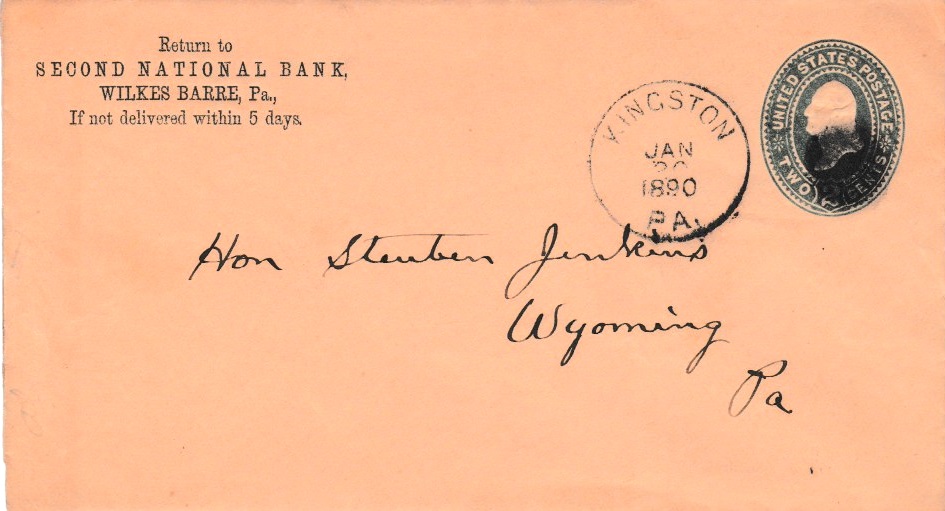 Return to
SECOND NATIONAL BANK,
WILKES BARRE, Pa.,
If not delivered within 5 days.
KINGSTON
JAN
20
1890
PA.
UNITED STATES POSTAGE
TWO CENTS
Hon Steuben Jenkins
Wyoming
Pa